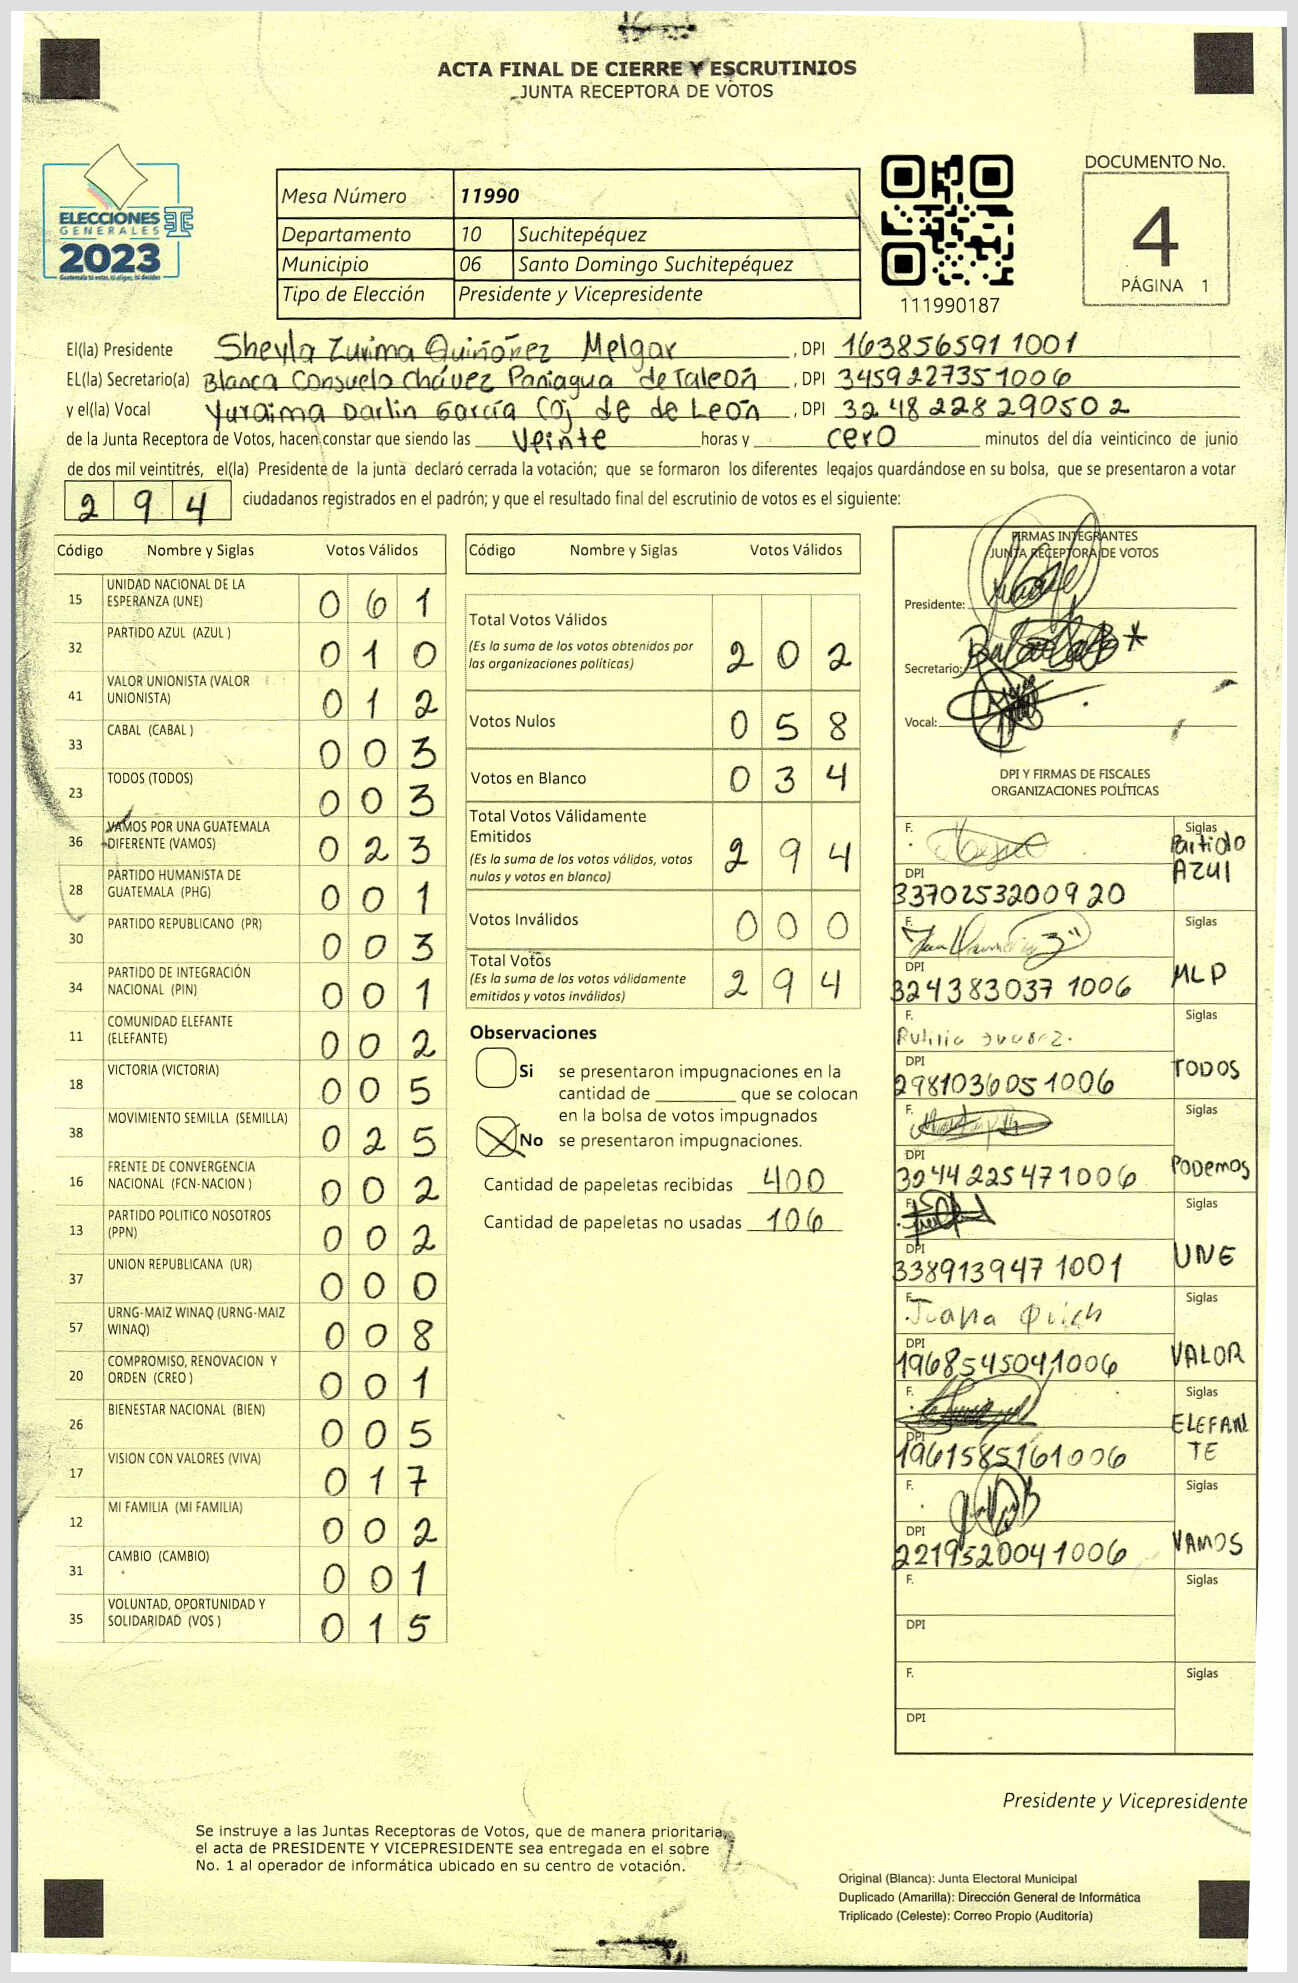 ACTA FINAL DE CIERRE Y ESCRUTINIOS
JUNTA RECEPTORA DE VOTOS
ELECCIONES
GENERALES
2023
Guatemala tú estas, tú eliges, tú decides
Mesa Número 11990
Departamento 10 Suchitepéquez
Municipio 06 Santo Domingo Suchitepéquez
Tipo de Elección Presidente y Vicepresidente
111990187
DOCUMENTO No.
4
PÁGINA 1
El(la) Presidente Sheyla Zurima Quiñónez Melgar, DPI 1638565911001
EL(la) Secretario(a) Blanca Consuelo Chávez Paniagua de Taleón, DPI 3459227351006
y el(la) Vocal Yuraima Darlin García Coj de de León, DPI 3248228290502
de la Junta Receptora de Votos, hacen constar que siendo las Veinte horas y cero minutos del día veinticinco de junio
de dos mil veintitrés, el(la) Presidente de la junta declaró cerrada la votación; que se formaron los diferentes legajos quardándose en su bolsa, que se presentaron a votar
294 ciudadanos registrados en el padrón; y que el resultado final del escrutinio de votos es el siguiente:
Código Nombre y Siglas Votos Válidos
15 UNIDAD NACIONAL DE LA ESPERANZA (UNE) 061
32 PARTIDO AZUL (AZUL ) 010
41 VALOR UNIONISTA (VALOR UNIONISTA) 012
33 CABAL (CABAL ) 003
23 TODOS (TODOS) 003
36 VAMOS POR UNA GUATEMALA DIFERENTE (VAMOS) 023
28 PARTIDO HUMANISTA DE GUATEMALA (PHG) 001
30 PARTIDO REPUBLICANO (PR) 003
34 PARTIDO DE INTEGRACIÓN NACIONAL (PIN) 001
11 COMUNIDAD ELEFANTE (ELEFANTE) 002
18 VICTORIA (VICTORIA) 005
38 MOVIMIENTO SEMILLA (SEMILLA) 025
16 FRENTE DE CONVERGENCIA NACIONAL (FCN-NACION ) 002
13 PARTIDO POLITICO NOSOTROS (PPN) 002
37 UNION REPUBLICANA (UR) 000
57 URNG-MAIZ WINAQ (URNG-MAIZ WINAQ) 008
20 COMPROMISO, RENOVACION Y ORDEN (CREO ) 001
26 BIENESTAR NACIONAL (BIEN) 005
17 VISION CON VALORES (VIVA) 017
12 MI FAMILIA (MI FAMILIA) 002
31 CAMBIO (CAMBIO) 001
35 VOLUNTAD, OPORTUNIDAD Y SOLIDARIDAD (VOS ) 015
Código Nombre y Siglas Votos Válidos
Total Votos Válidos
(Es la suma de los votos obtenidos por
las organizaciones políticas) 202
Votos Nulos 058
Votos en Blanco 034
Total Votos Válidamente
Emitidos
(Es la suma de los votos válidos, votos
nulos y votos en blanco) 294
Votos Inválidos 000
Total Votos
(Es la suma de los votos válidamente
emitidos y votos inválidos) 294
Observaciones
Si se presentaron impugnaciones en la
cantidad de ________ que se colocan
en la bolsa de votos impugnados
No se presentaron impugnaciones.
Cantidad de papeletas recibidas 400
Cantidad de papeletas no usadas 106
FIRMAS INTEGRANTES
JUNTA RECEPTORA DE VOTOS
Presidente:
Secretario:
Vocal:
DPI Y FIRMAS DE FISCALES
ORGANIZACIONES POLÍTICAS
F. Siglas Partido AZUl
DPI 3370253200920
F. Siglas MLP
DPI 3243830371006
F. Siglas TODOS
DPI 2981036051006
F. Siglas PODEMOS
DPI 3244225471006
F. Siglas UNE
DPI 3389139471001
F. Juana Siglas VALOR
DPI 1968545041006
F. Siglas ELEFANTE
DPI 1961585161006
F. Siglas VAMOS
DPI 2219520041006
F. Siglas
DPI
F. Siglas
DPI
Presidente y Vicepresidente
Se instruye a las Juntas Receptoras de Votos, que de manera prioritaria,
el acta de PRESIDENTE Y VICEPRESIDENTE sea entregada en el sobre
No. 1 al operador de informática ubicado en su centro de votación.
Original (Blanca): Junta Electoral Municipal
Duplicado (Amarilla): Dirección General de Informática
Triplicado (Celeste): Correo Propio (Auditoría)